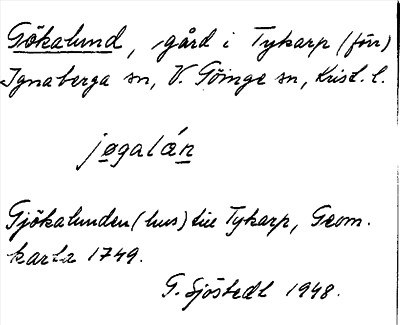 Gökalund, gård i Tykarp (förr)
Ignaberga sn, V. Göinge sn, Krist. l.
jøgalán
Gjökalunden (hus) till Tykarp, Geom.
karta 1749.
G. Sjöstedt 1948.